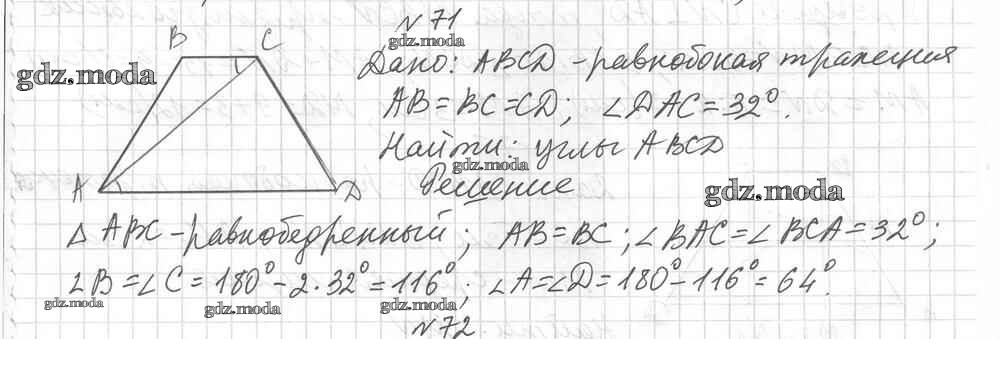 N 71
gdz.moda
B C
gdz.moda
Дано: ABCD - равнобокая трапеция
AB = BC = CD; ∠DAC = 32°.
Найти: углы ABCD
gdz.moda
A D
Решение
gdz.moda
Δ ABC - равнобедренный; AB = BC; ∠BAC = ∠BCA = 32°;
∠B = ∠C = 180° - 2·32° = 116°; ∠A = ∠D = 180° - 116° = 64°.
gdz.moda gdz.moda gdz.moda
N 72